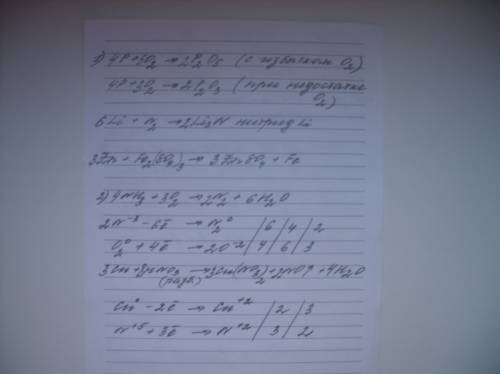 1) 4P+5O₂ → 2P₂O₅ (с избытком O₂)
4P+3O₂ → 2P₂O₃ (при недостатке O₂)
6Li + N₂ → 2Li₃N нитрид Li
3Zn + Fe₂(SO₄)₃ → 3ZnSO₄ + Fe
2) 4NH₃ + 3O₂ → 2N₂ + 6H₂O
2N⁻³ - 6ē → N₂⁰ | 6 | 4 | 2
O₂⁰ + 4ē → 2O⁻² | 4 | 6 | 3
3Cu + 8HNO₃ → 3Cu(NO₃)₂ + 2NO↑ + 4H₂O
(разб)
Cu⁰ - 2ē → Cu⁺² | 2 | 3
N⁺⁵ + 3ē → N⁺² | 3 | 2